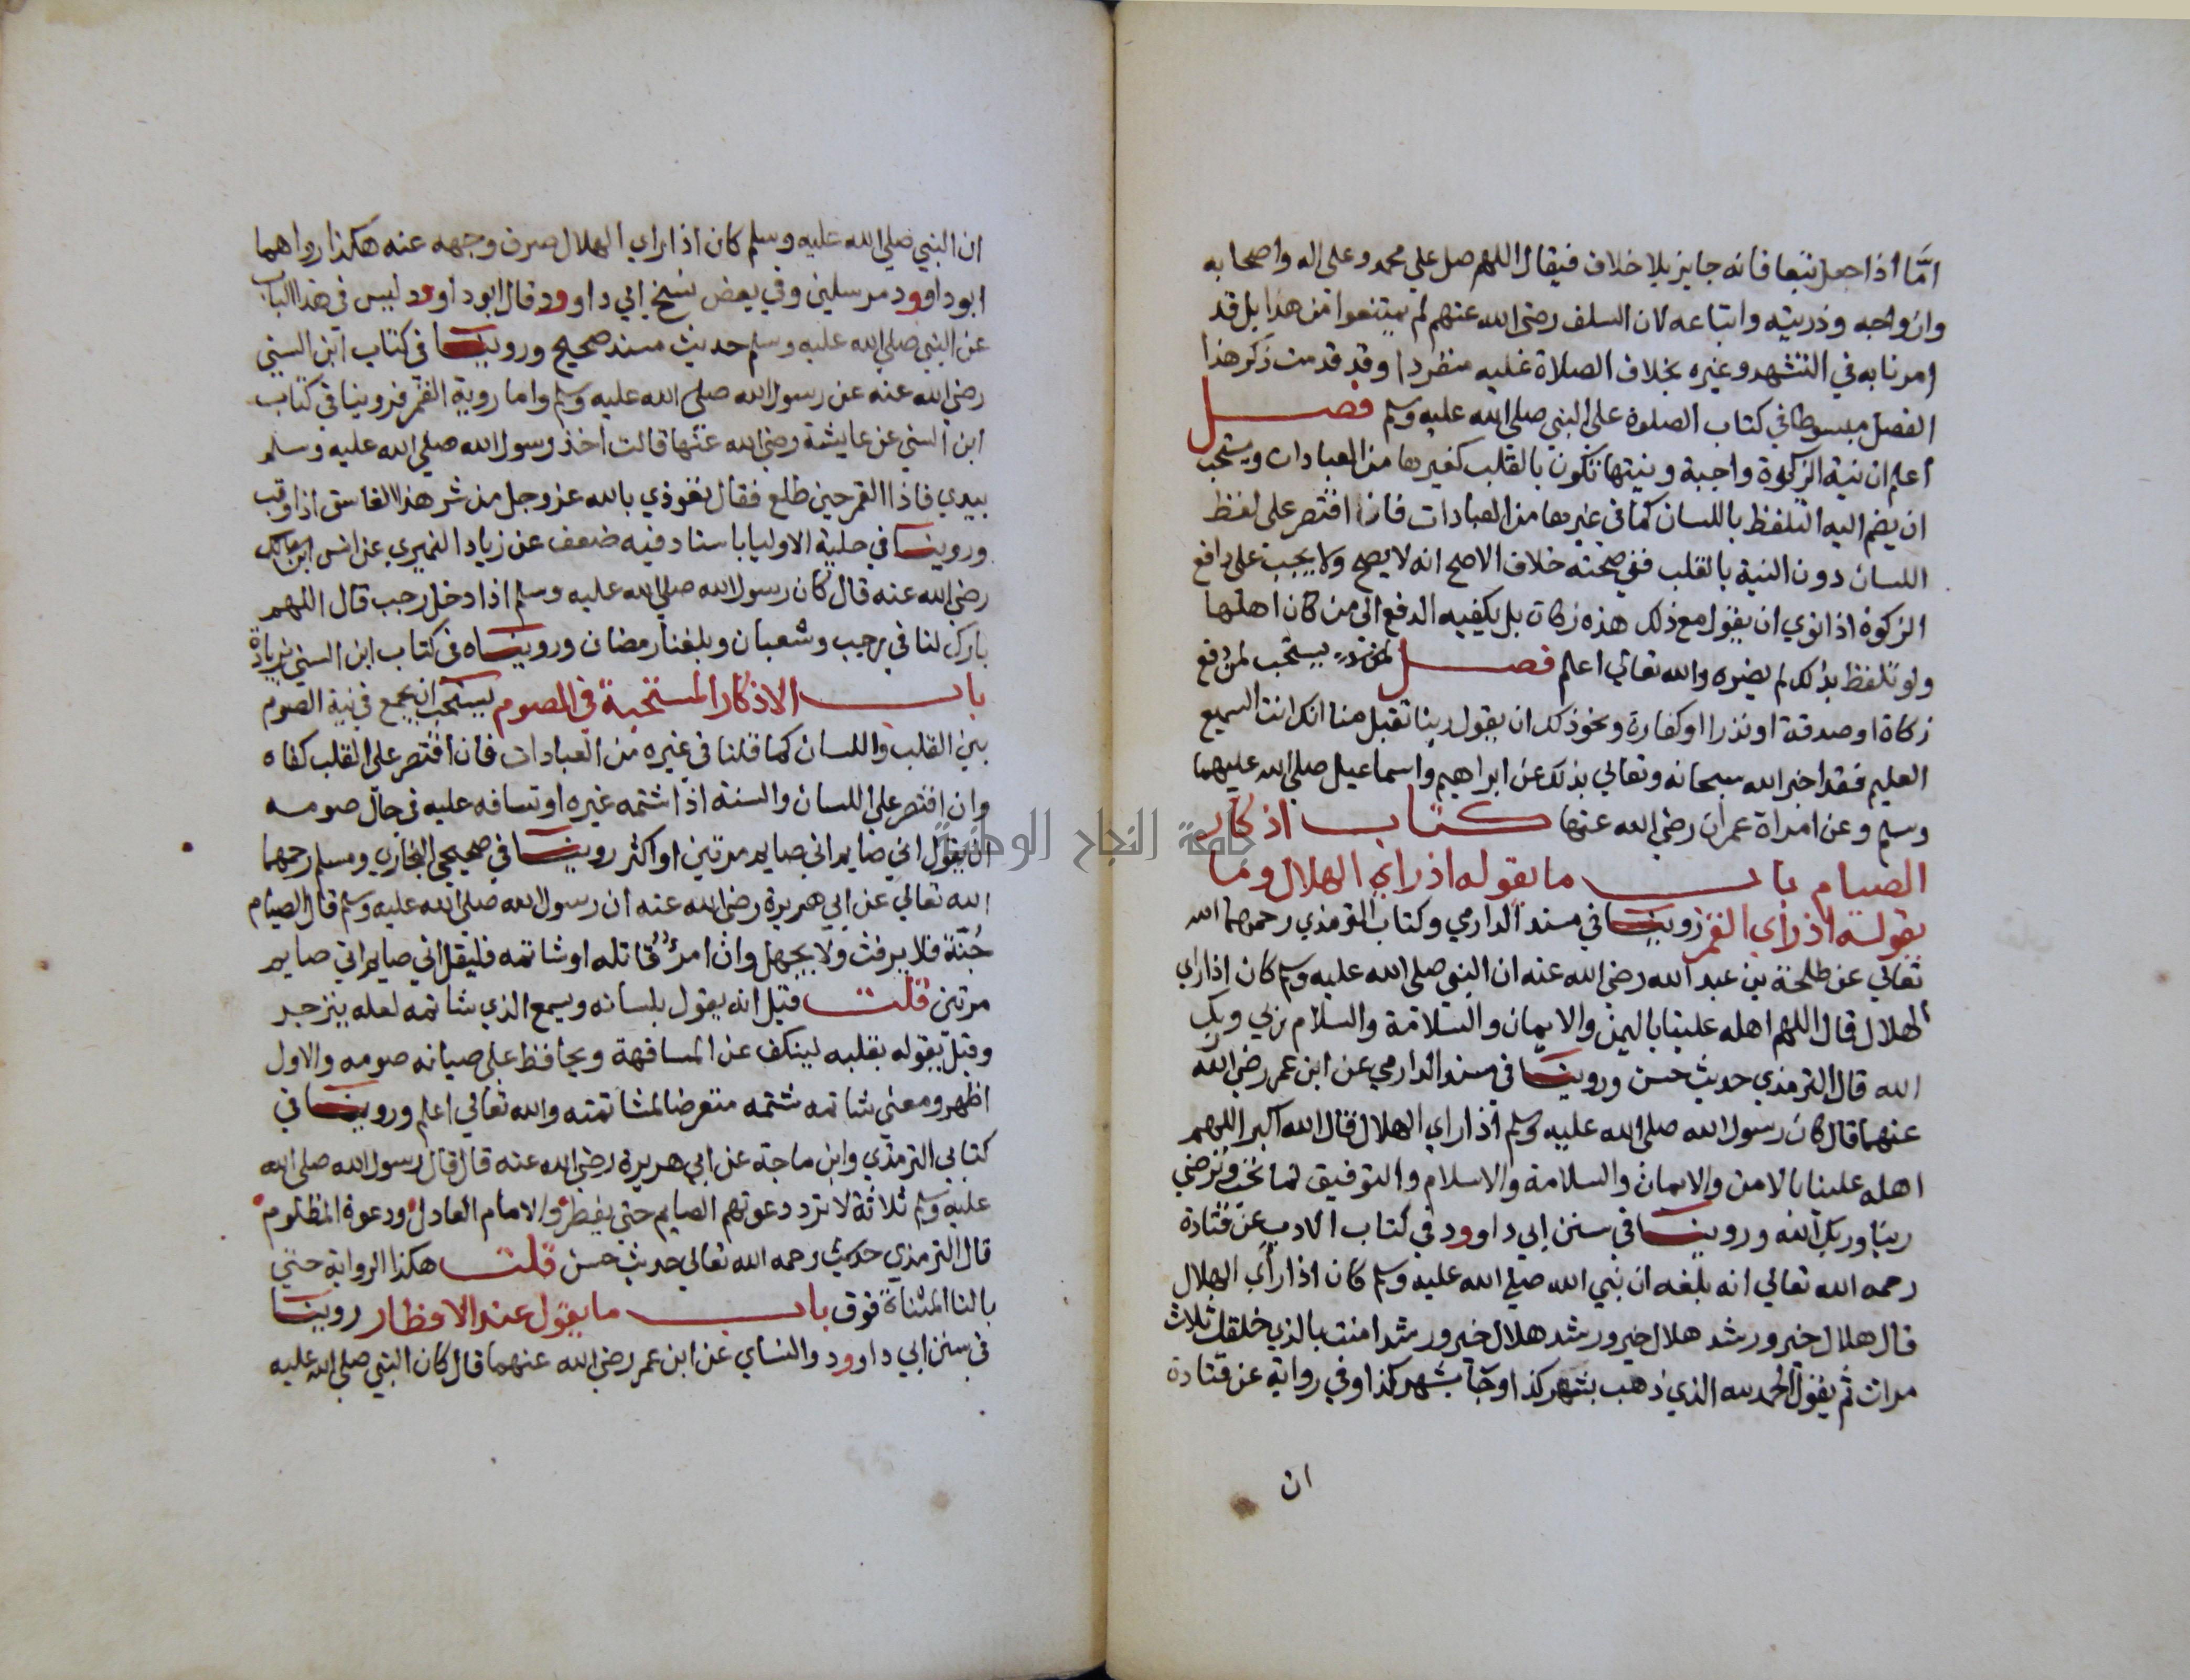 امّا اذا جعل تبعا فانه جايز بلا خلاف فيقال اللهم صل علي محمد وعلي اله واصحابه
وازواجه وذريته واتباعه لان السلف رضي الله عنهم لم يمتنعوا من هذا بل قد
امرنا به في التشهد وغيره بخلاف الصلاة عليه منفردا وقد قدمت ذكر هذا
الفصل مبسوطا في كتاب الصلوة علي النبي صلي الله عليه وسلم فصل
اعلم ان نية الزكوة واجبة ونيتها تكون بالقلب كغيرها من العبادات ويستحب
ان يضم اليه التلفظ باللسان كما في غيرها من العبادات فان اقتصر علي لفظ
اللسان دون النية بالقلب ففي صحته خلاف الاصح انه لا يصح ولا يجب علي دافع
الزكوة اذا نوي ان يقول مع ذلك هذه زكات بل يكفيه الدفع الي من كان اهلها
ولو تلفظ بذلك لم يضره والله تعالي اعلم فصل يستحب لمن دفع
زكاة او صدقة او نذرا او كفارة ونحو ذلك ان يقول ربنا تقبل منا انك انت السميع
العليم فقد اخبر الله سبحانه وتعالي بذلك عن ابراهيم واسماعيل صلي الله عليهما
وسلم وعن امراة عمران رضي الله عنها كتاب اذكار
الصيام باب ما يقوله اذ راي الهلال وما
يقوله اذ راي القمر روينا في مسند الدارمي وكتاب الترمذي رحمهما الله
تعالي عن طلحة بن عبد الله رضي الله عنه ان النبي صلي الله عليه وسلم كان اذا راي
الهلال قال اللهم اهله علينا باليمن والايمان والسلامة والسلام ربي وربك
الله قال الترمذي حديث حسن وروينا في مسند الدارمي عن ابن عمر رضي الله
عنهما قال كان رسول الله صلي الله عليه وسلم اذا راي الهلال قال الله اكبر اللهم
اهله علينا بالامن والايمان والسلامة والاسلام والتوفيق لما تحب وترضي
ربنا وربك الله وروينا في سنن ابي داوود في كتاب الادب عن قتادة
رحمه الله تعالي انه بلغه ان نبي الله صلي الله عليه وسلم كان اذا راي الهلال
قال هلال خير ورشد هلال خير ورشد هلال خير ورشد امنت بالذي خلقك ثلاث
مرات ثم يقول الحمد لله الذي ذهب بشهر كذا وجآ بشهر كذا وفي رواية عن قتادة
ان
ان النبي صلي الله عليه وسلم كان اذا راي الهلال صرف وجهه عنه هكذا رواهما
ابو داوود مرسلين وفي بعض نسخ ابي داوود قال ابو داوود ليس في هذا الباب
عن النبي صلي الله عليه وسلم حديث مسند صحيح وروينا في كتاب ابن السني
رضي الله عنه عن رسول الله صلي الله عليه وسلم واما روية القمر فروينا في كتاب
ابن السني عن عايشة رضي الله عنها قالت اخذ رسول الله صلي الله عليه وسلم
بيدي فاذا القمر حين طلع فقال تعوذي بالله عز وجل من شر هذا الغاسق اذا وقب
وروينا في حلية الاوليا باسناد فيه ضعف عن زياد النميري عن انس ابن مالك
رضي الله عنه قال كان رسول الله صلي الله عليه وسلم اذا دخل رجب قال اللهم
بارك لنا في رجب وشعبان وبلغنا رمضان ورويناه في كتاب ابن السني بزيادة
باب الاذكار المستحبة في الصوم يستحب ان يجمع في نية الصوم
بين القلب واللسان كما قلنا في غيره من العبادات فان اقتصر علي القلب كفاه
وان اقتصر علي اللسان والسنة اذا شتمه غيره او تسافه عليه في حال صومه
ان يقول اني صايم اني صايم مرتين او اكثر روينا في صحيحي البخاري ومسلم رحمهما
الله تعالي عن ابي هريرة رضي الله عنه ان رسول الله صلي الله عليه وسلم قال الصيام
جُنّة فلا يرفث ولا يجهل وان امرؤ قاتله او شاتمه فليقل اني صايم اني صايم
مرتين قلت قيل انه يقول بلسانه ويسمع الذي شاتمه لعله ينزجر
وقيل يقوله بقلبه لينكف عن المسافهة ويحافظ علي صيانه صومه والاول
اظهر ومعني شاتمه شتمه متعرضا لمشاتمته والله تعالي اعلم وروينا في
كتابي الترمذي وابن ماجة عن ابي هريرة رضي الله عنه قال قال رسول الله صلي الله
عليه وسلم ثلاثة لا ترد دعوتهم الصايم حتي يفطر والامام العادل ودعوة المظلوم
قال الترمذي حديث رحمه الله تعالي حديث حسن قلت هكذا الرواية حتي
بالتا المثناة فوق باب ما يقول عند الافطار روينا
في سنن ابي داوود والنساي عن ابن عمر رضي الله عنهما قال كان النبي صلي الله عليه
جامعة النجاح الوطنية